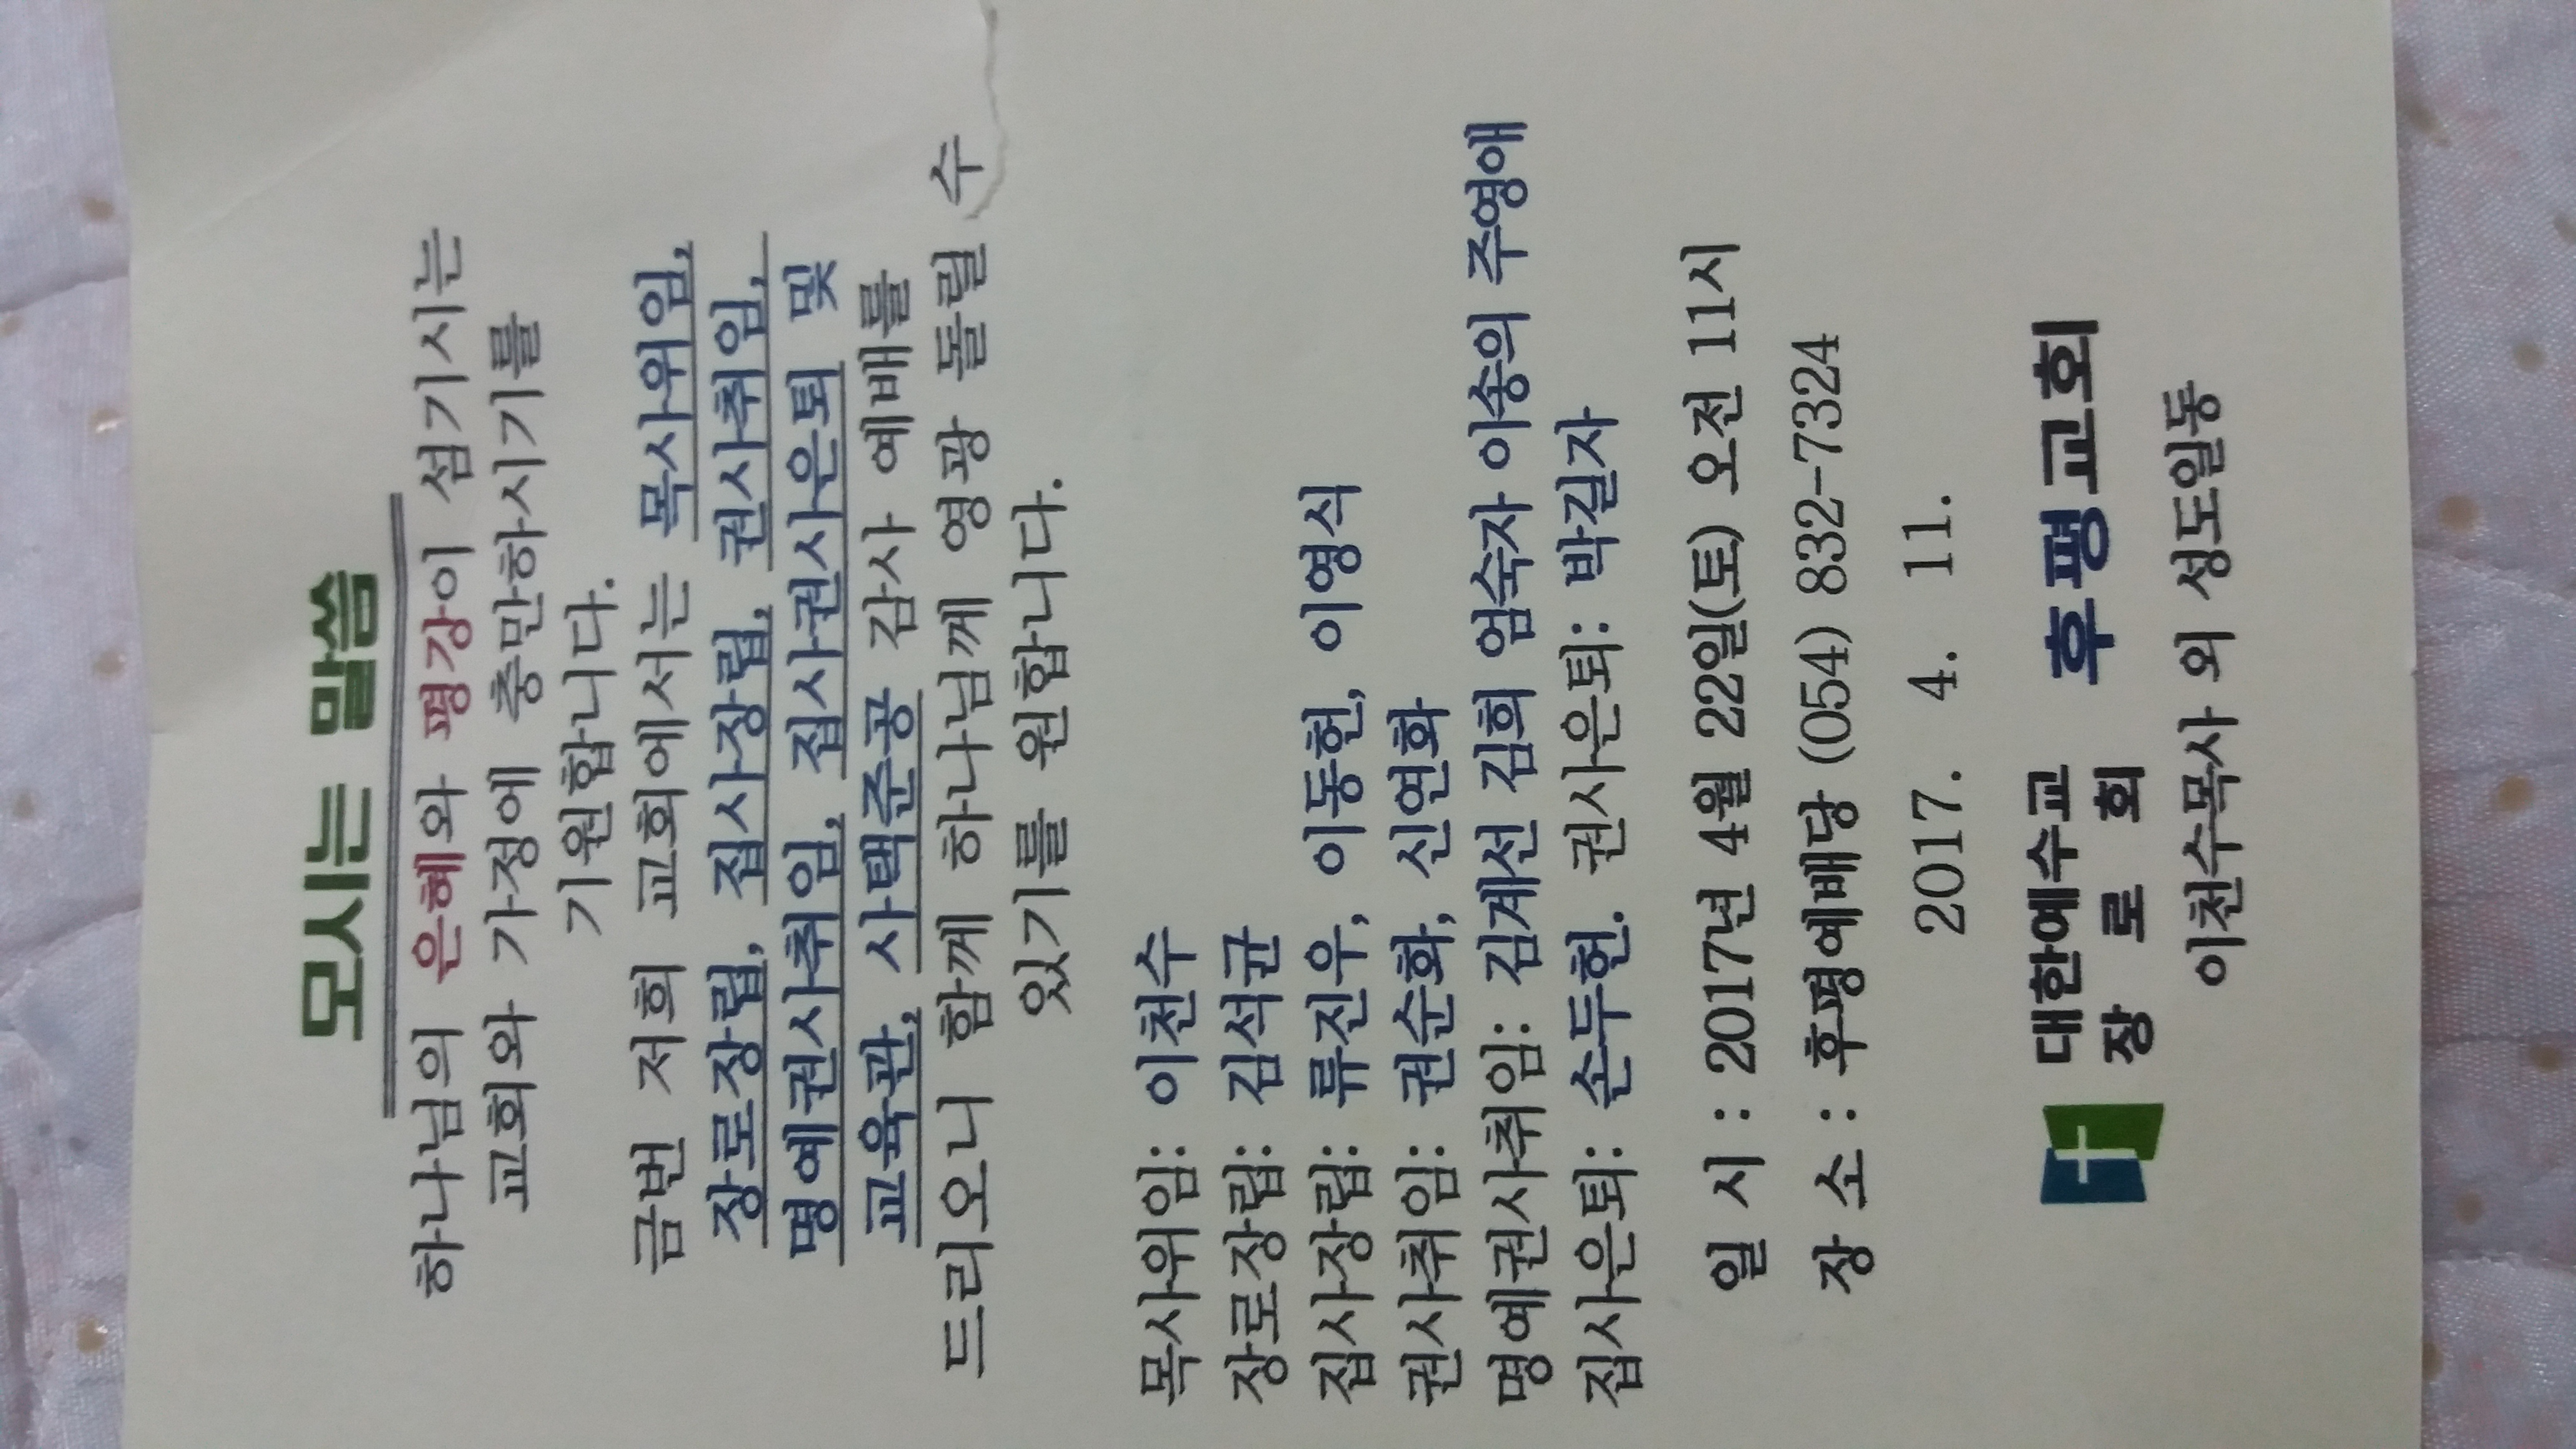 모시는 말씀
하나님의 은혜와 평강이 섬기시는
교회와 가정에 충만하시기를
기원합니다.
금번 저희 교회에서는 목사위임,
장로장립, 집사장립, 권사취임,
명예권사취임, 집사권사은퇴 및
교육관, 사택준공 감사 예배를
드리오니 함께 하나님께 영광 돌릴 수
있기를 원합니다.
목사위임: 이천수
장로장립: 김석균
집사장립: 류진우, 이동헌, 이영식
권사취임: 권순화, 신연화
명예권사취임: 김계선 김희 엄숙자 이송의 주영애
집사은퇴: 손두헌. 권사은퇴: 박길자
일 시 : 2017년 4월 22일(토) 오전 11시
장 소 : 후평예배당 (054) 832-7324
2017. 4. 11.
대한예수교
장 로 회
후평교회
이천수목사 외 성도일동